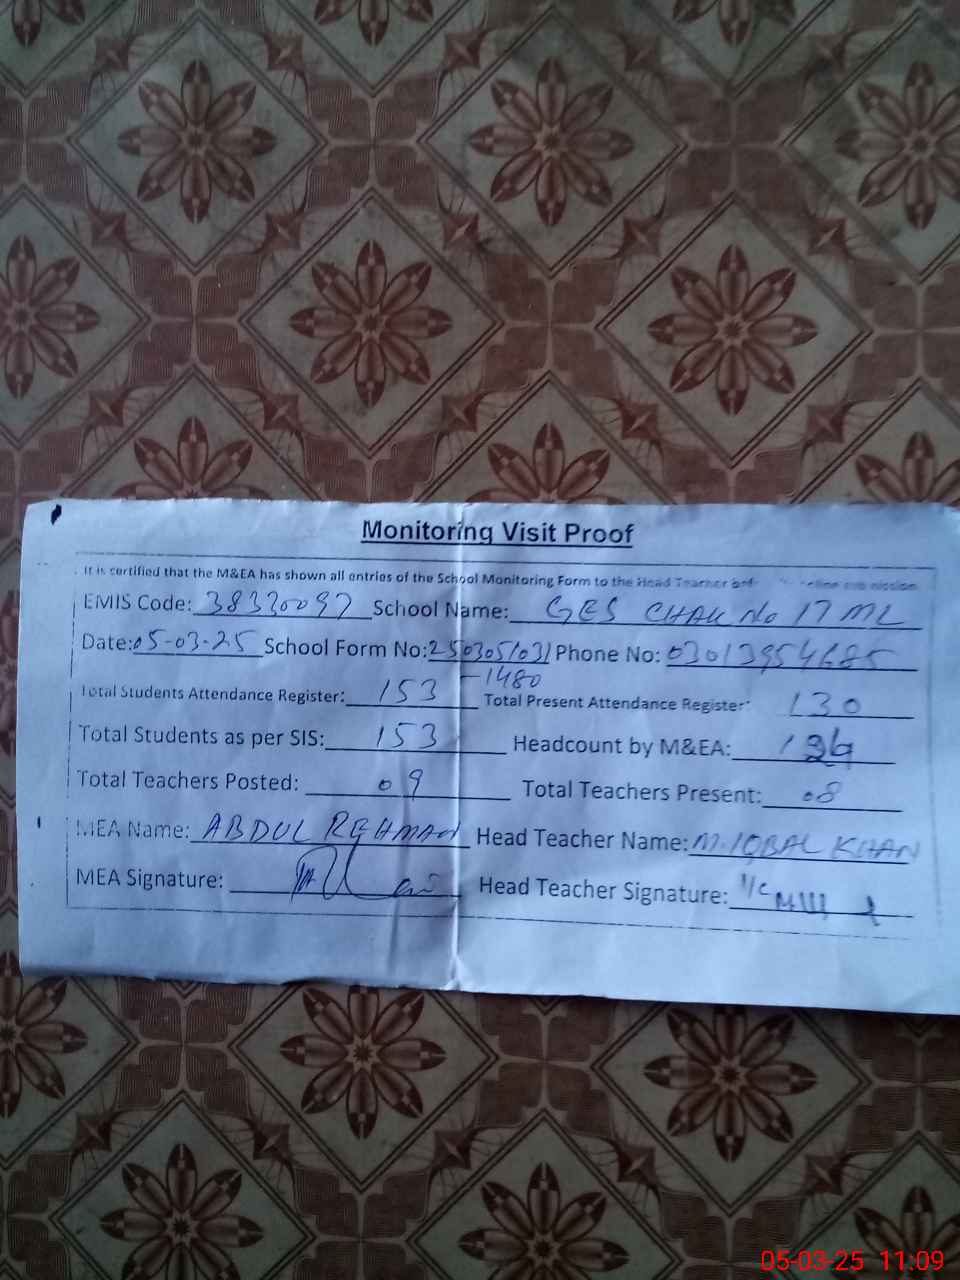 Monitoring Visit Proof
It is certified that the M&EA has shown all entries of the School Monitoring Form to the Head Teacher
EMIS Code: 38330097 School Name: GES CHAK No 17 ML
Date: 05-03-25 School Form No: 2503051031 Phone No: 03013954685
-1480
Total Students Attendance Register: 153 Total Present Attendance Register: 130
Total Students as per SIS: 153 Headcount by M&EA:
Total Teachers Posted: 09 Total Teachers Present: 08
MEA Name: ABDUL REHMAN Head Teacher Name: M. IQBAL KHAN
MEA Signature: Head Teacher Signature: I/C
05-03-25 11:09